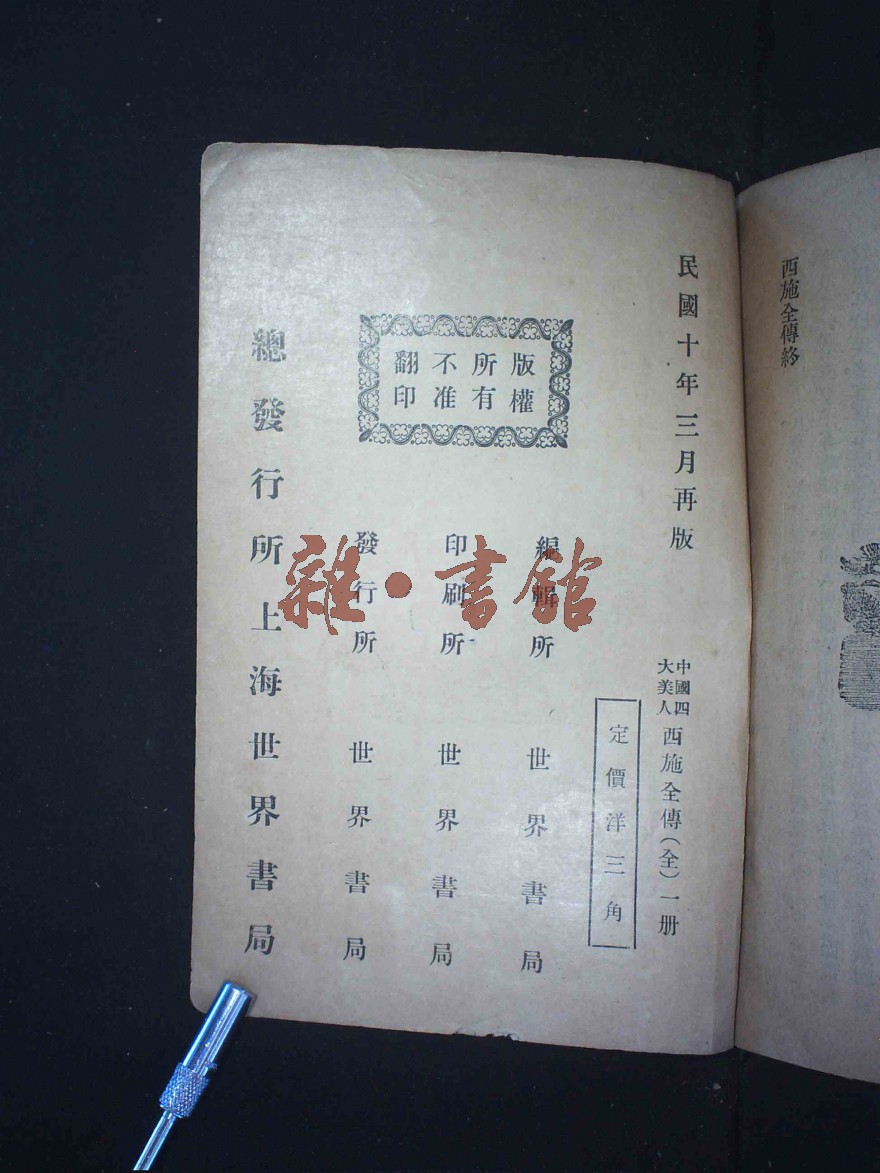 西施全傳終
民國十年三月再版
中國四大美人 西施全傳(全)一册
定價洋三角
版權
所有
不准
翻印
編輯所 世界書局
印刷所 世界書局
發行所 世界書局
總發行所上海世界書局
雜·書館